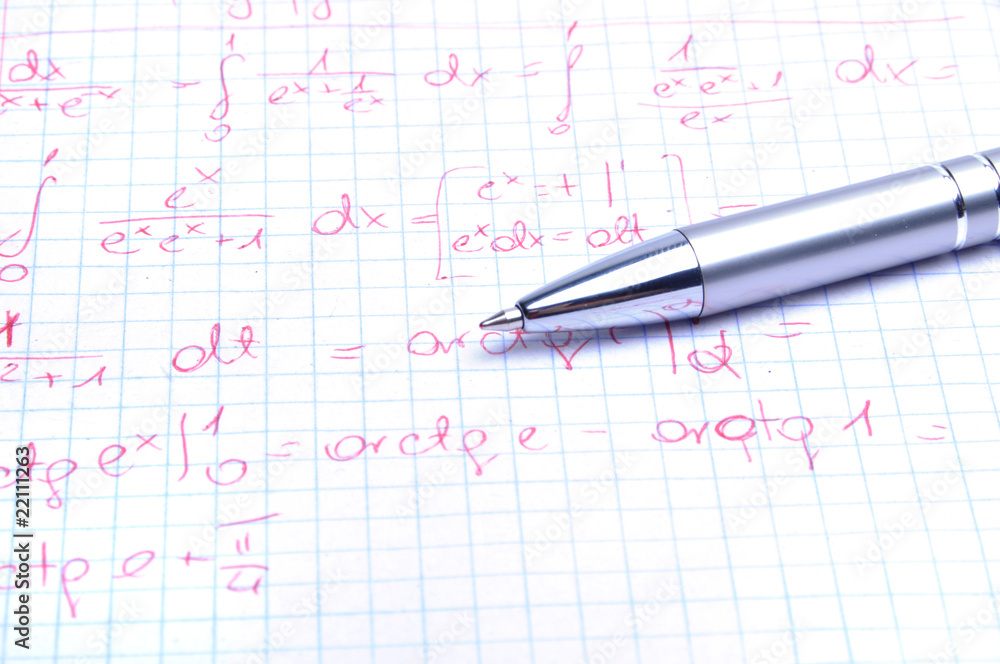 dx / x + e⁻ˣ = ∫₀¹ 1 / (eˣ + 1/eˣ) dx = ∫₀¹ 1 / ((eˣeˣ + 1) / eˣ) dx =
∫₀¹ eˣ / (eˣeˣ + 1) dx = [ eˣ = t |'
eˣdx = dt ] =
1 / (2 + 1) dt = arctg =
ctg eˣ |₀¹ = arctg e - arctg 1 =
ctg e + π/4
Adobe Stock | #22111263